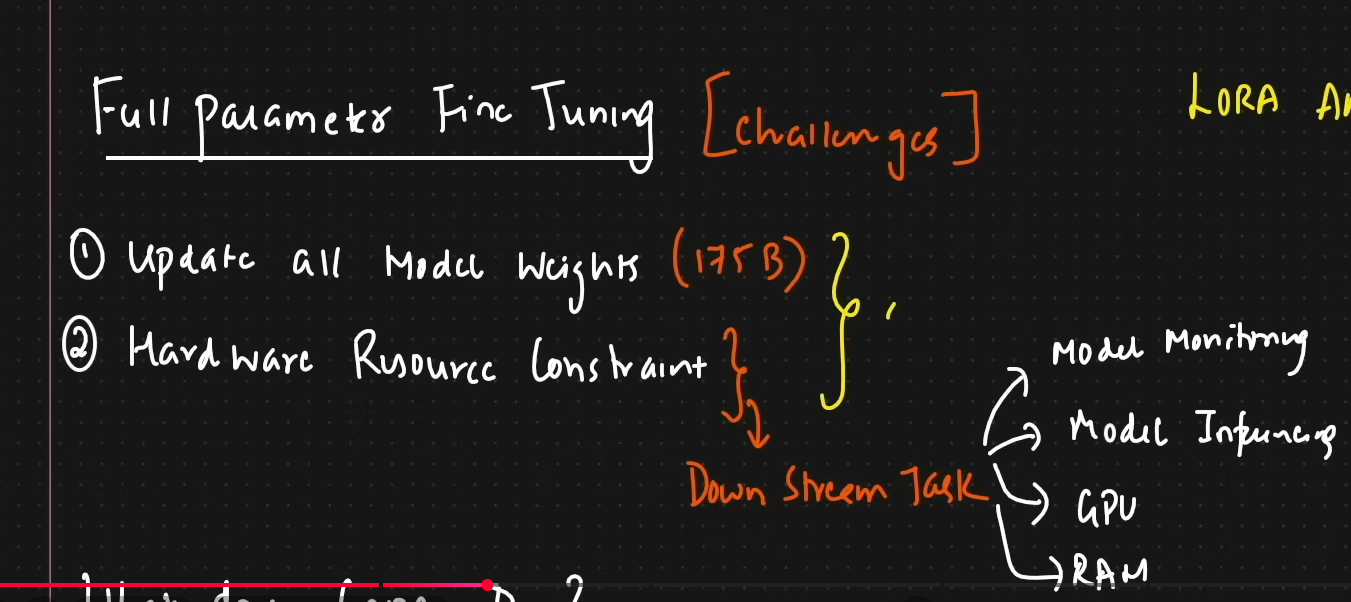 Full Parameter Fine Tuning [Challenges]
LORA
① Update all Model Weights (175B)
② Hardware Resource Constraint
Down Stream Task
Model Monitoring
Model Inferencing
GPU
RAM